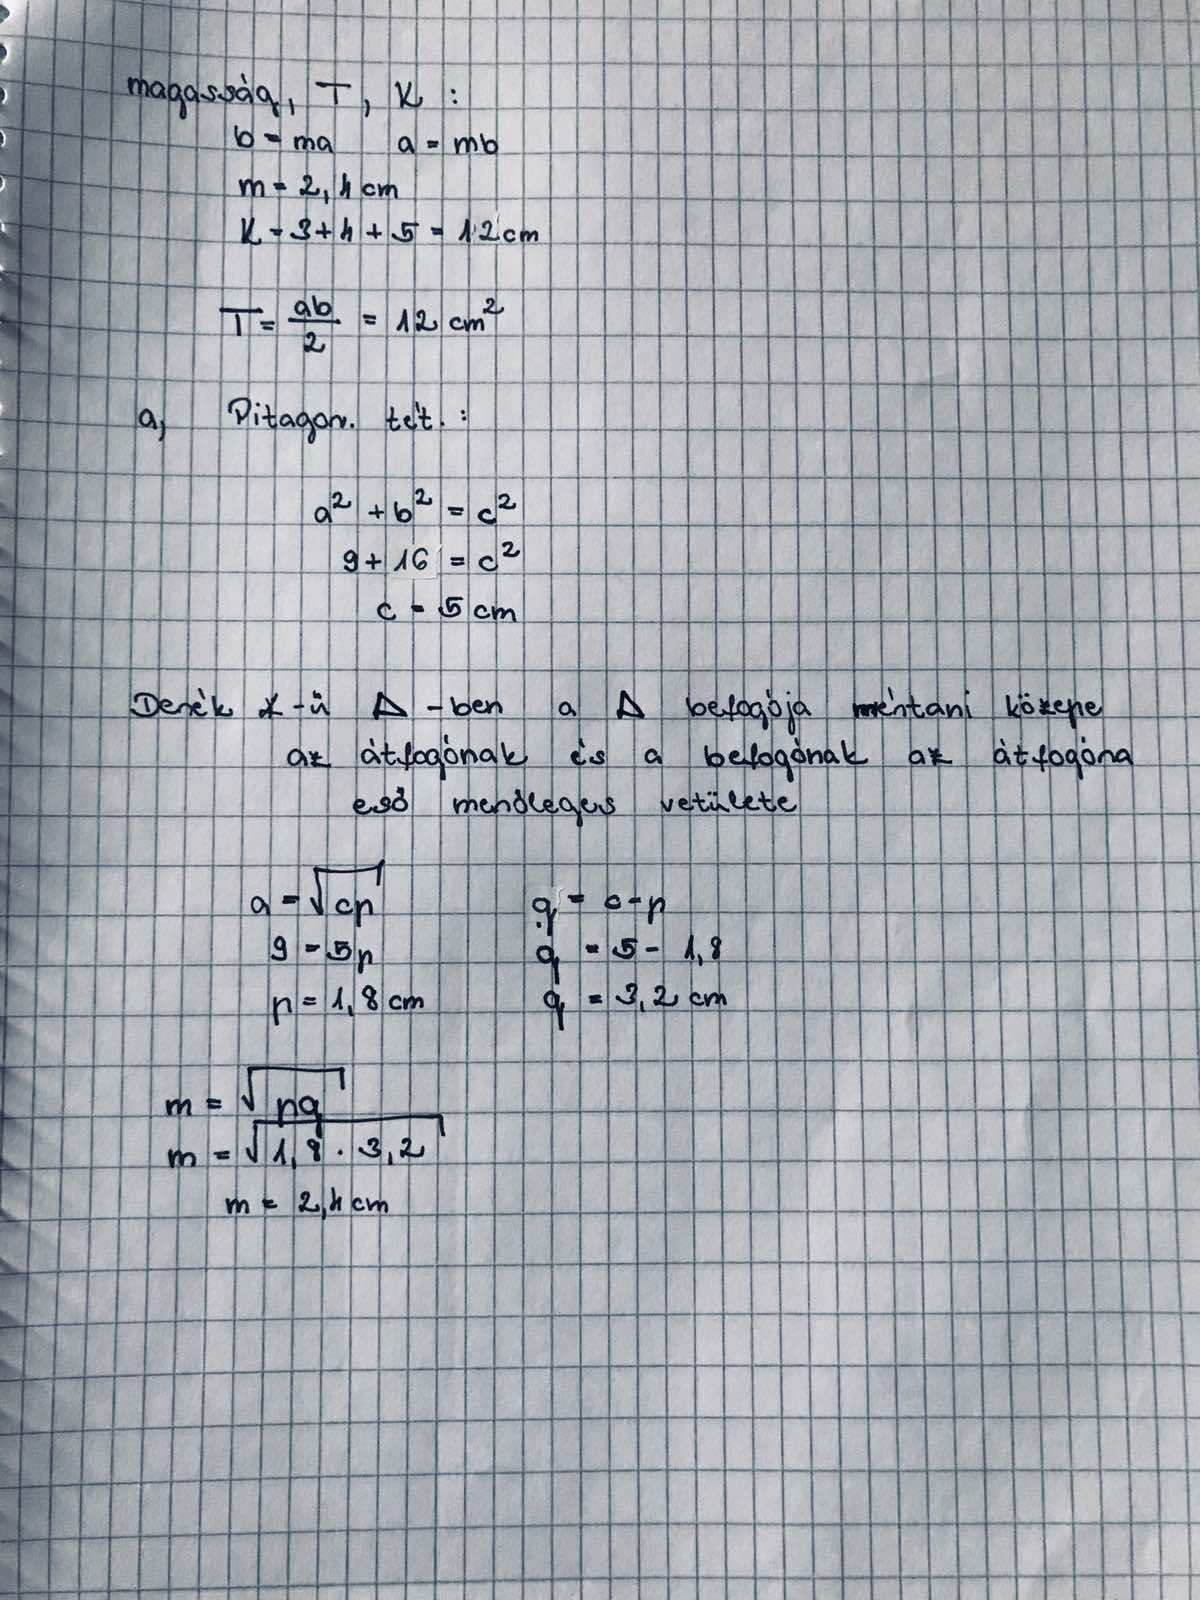 magasság, T, K :
b = ma a = mb
m = 2,4 cm
K = 3 + 4 + 5 = 12 cm
T = ab/2 = 12 cm²
a, Pitagor. tét. :
a² + b² = c²
9 + 16 = c²
c = 5 cm
Derék ∢-ű Δ -ben a Δ befogója mértani közepe
az átfogónak és a befogónak az átfogóra
eső merőleges vetülete
a = √cp q = c - p
9 = 5p q = 5 - 1,8
p = 1,8 cm q = 3,2 cm
m = √pq
m = √1,8 · 3,2
m = 2,4 cm